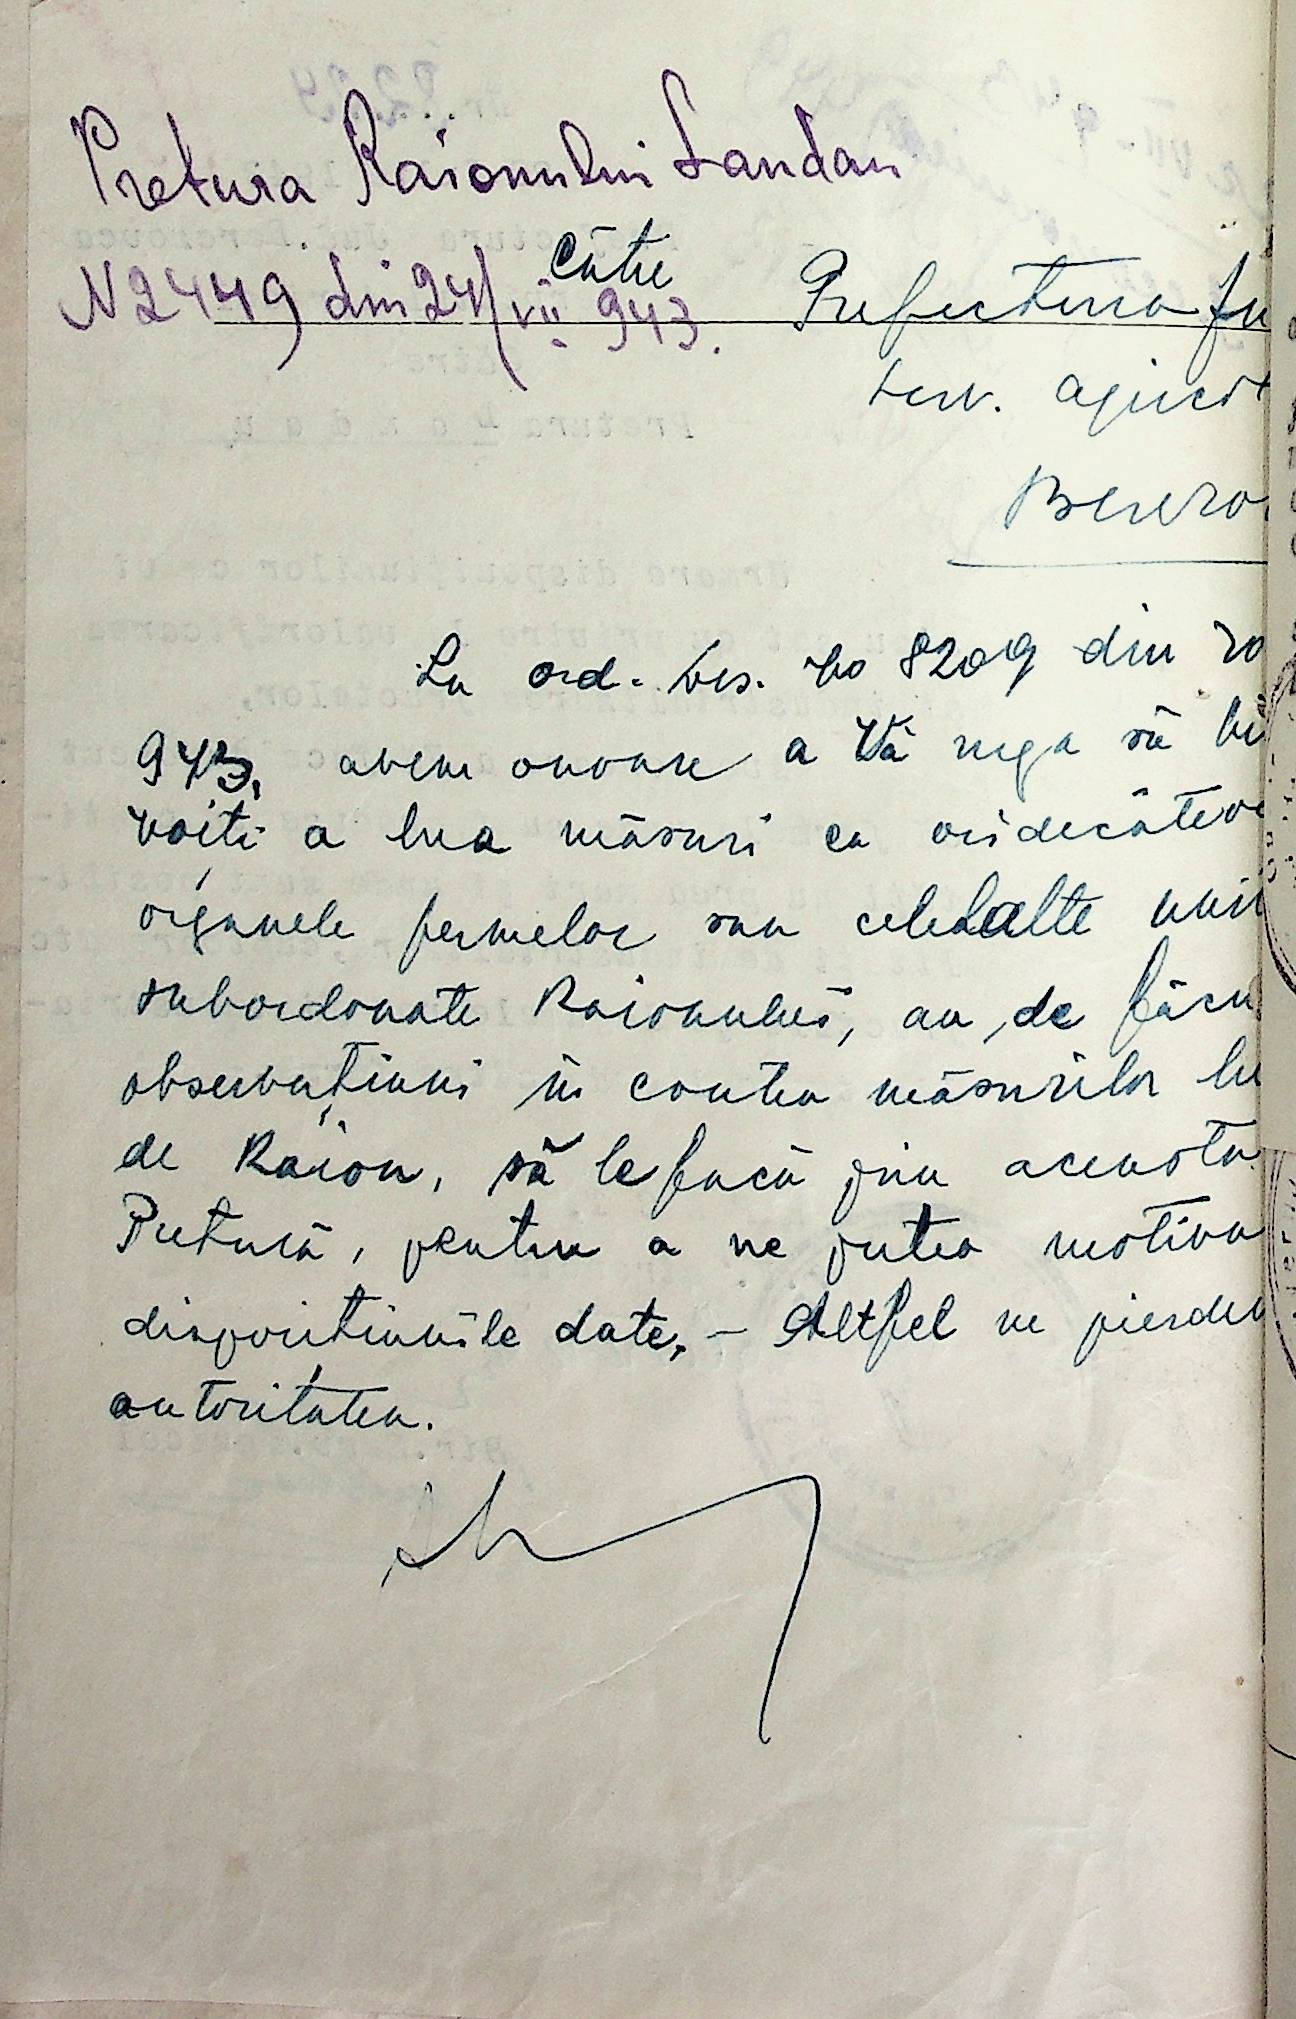 Pretura Raionului Landau
Către
N 2449 din 24/VII 943.
Prefectura Ju
serv. agricol
Berezo
La ord. Dvs. No 8209 din 20
943, avem onoare a Vă ruga să bi
voiți a lua măsuri ca oridecâteor
organele fermelor sau celelalte unit
subordonate Raionului, au de făcut
observațiuni în contra măsurilor lu
de Raion, să le facă prin aceasta
Pretură, pentru a ne putea motiva
dispozițiunile date. – Altfel ne pierdem
autoritatea.